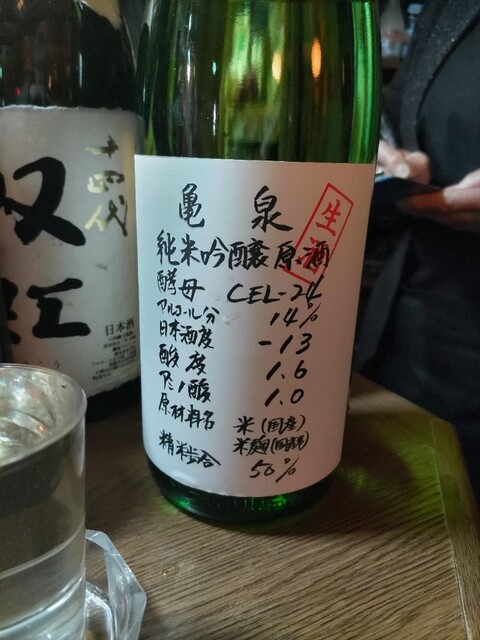 亀泉
生酒
純米吟醸原酒
酵母 CEL-24
アルコール分 14%
日本酒度 -13
酸度 1.6
アミノ酸 1.0
原材料名 米(国産)
米麹(国産米)
精米歩合 50%
十四代
双虹
日本酒